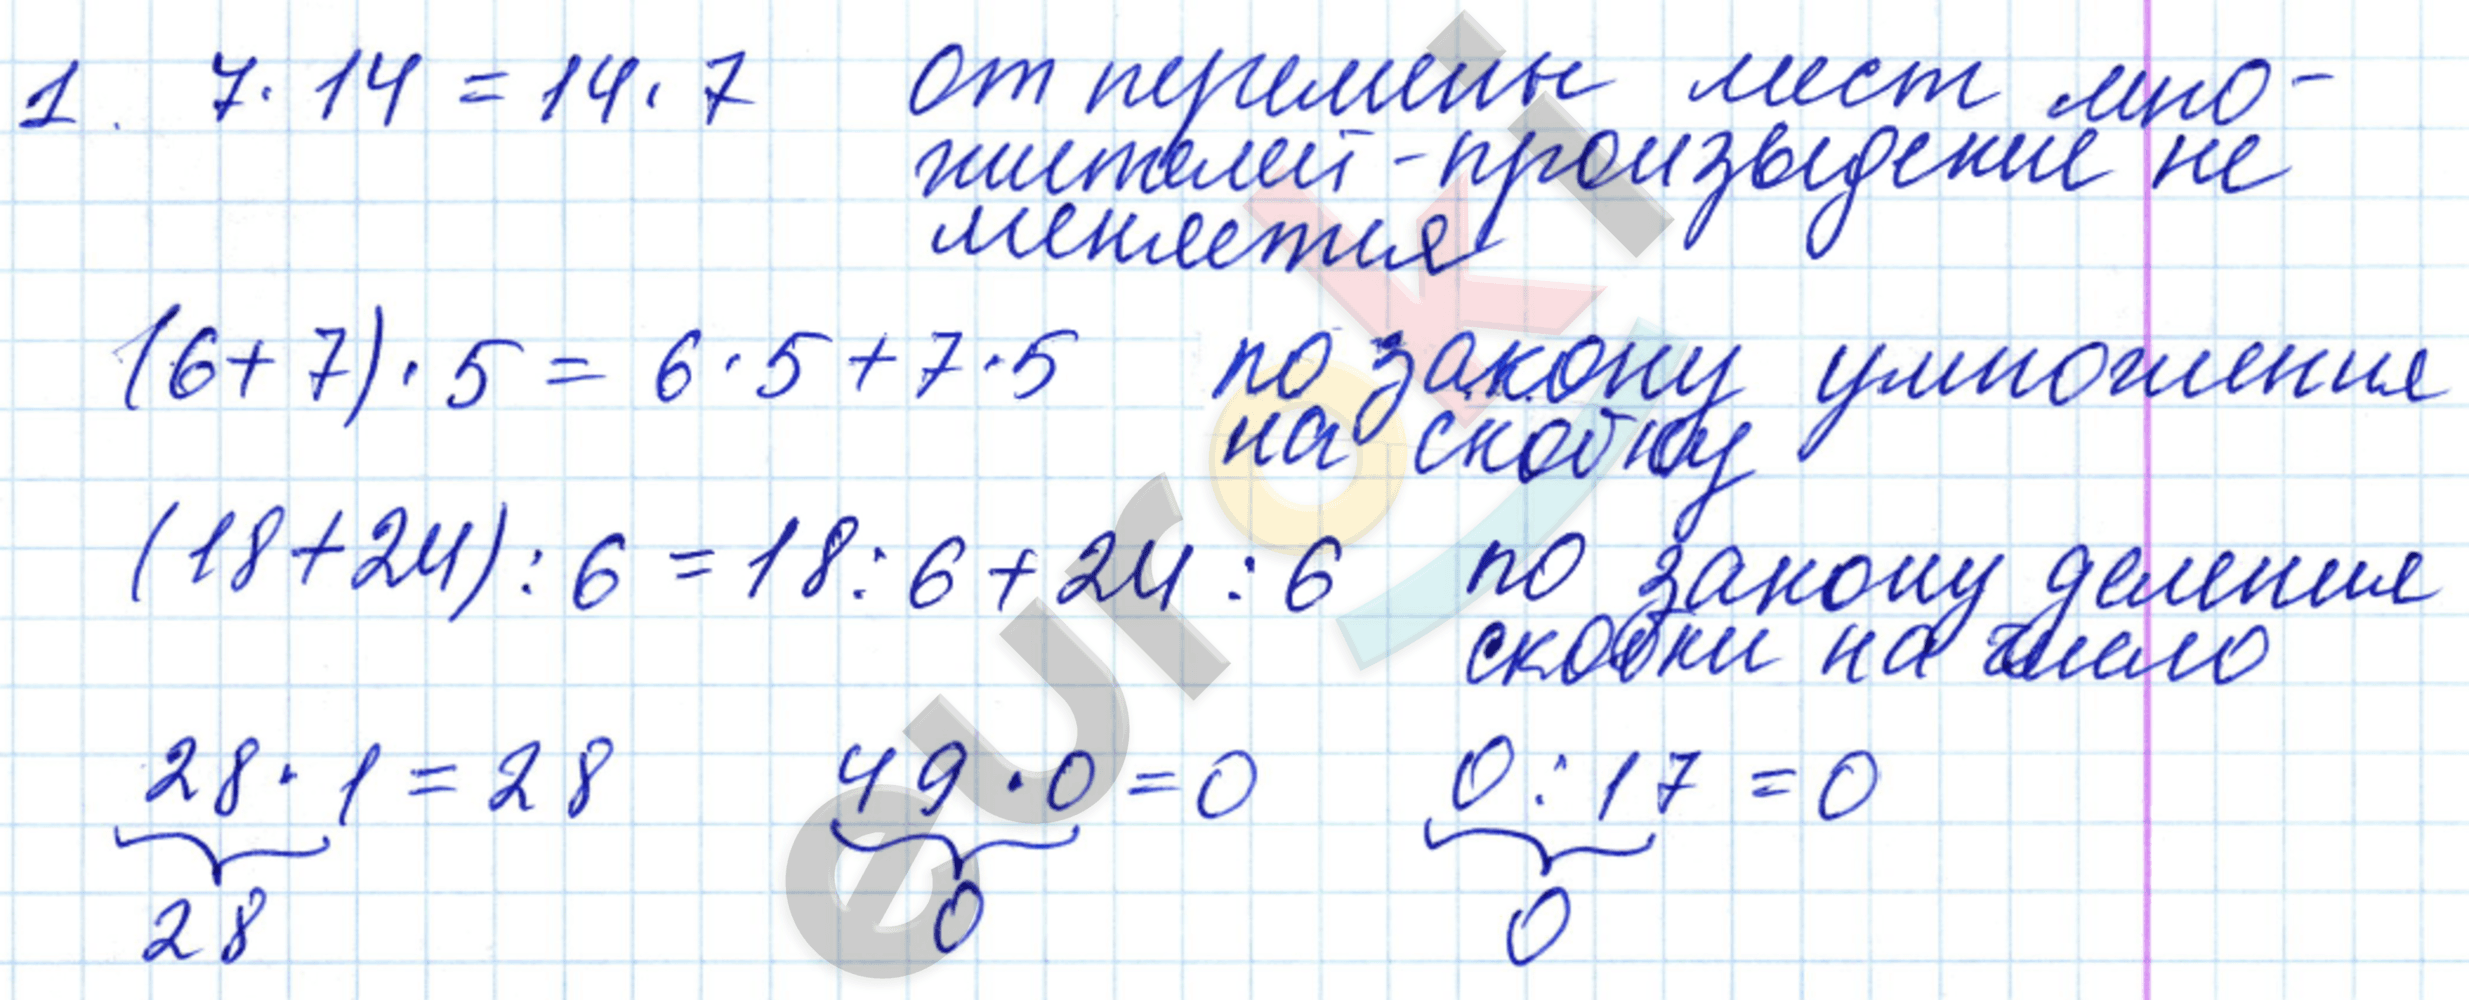 1. 7 · 14 = 14 · 7 от перемены мест мно-
жителей - произвыдение не
меняется
(6 + 7) · 5 = 6 · 5 + 7 · 5 по закону умножения
на скобку
(18 + 24) : 6 = 18 : 6 + 24 : 6 по закону деления
скобки на число
28 · 1 = 28 49 · 0 = 0 0 : 17 = 0
28 0 0
euroki